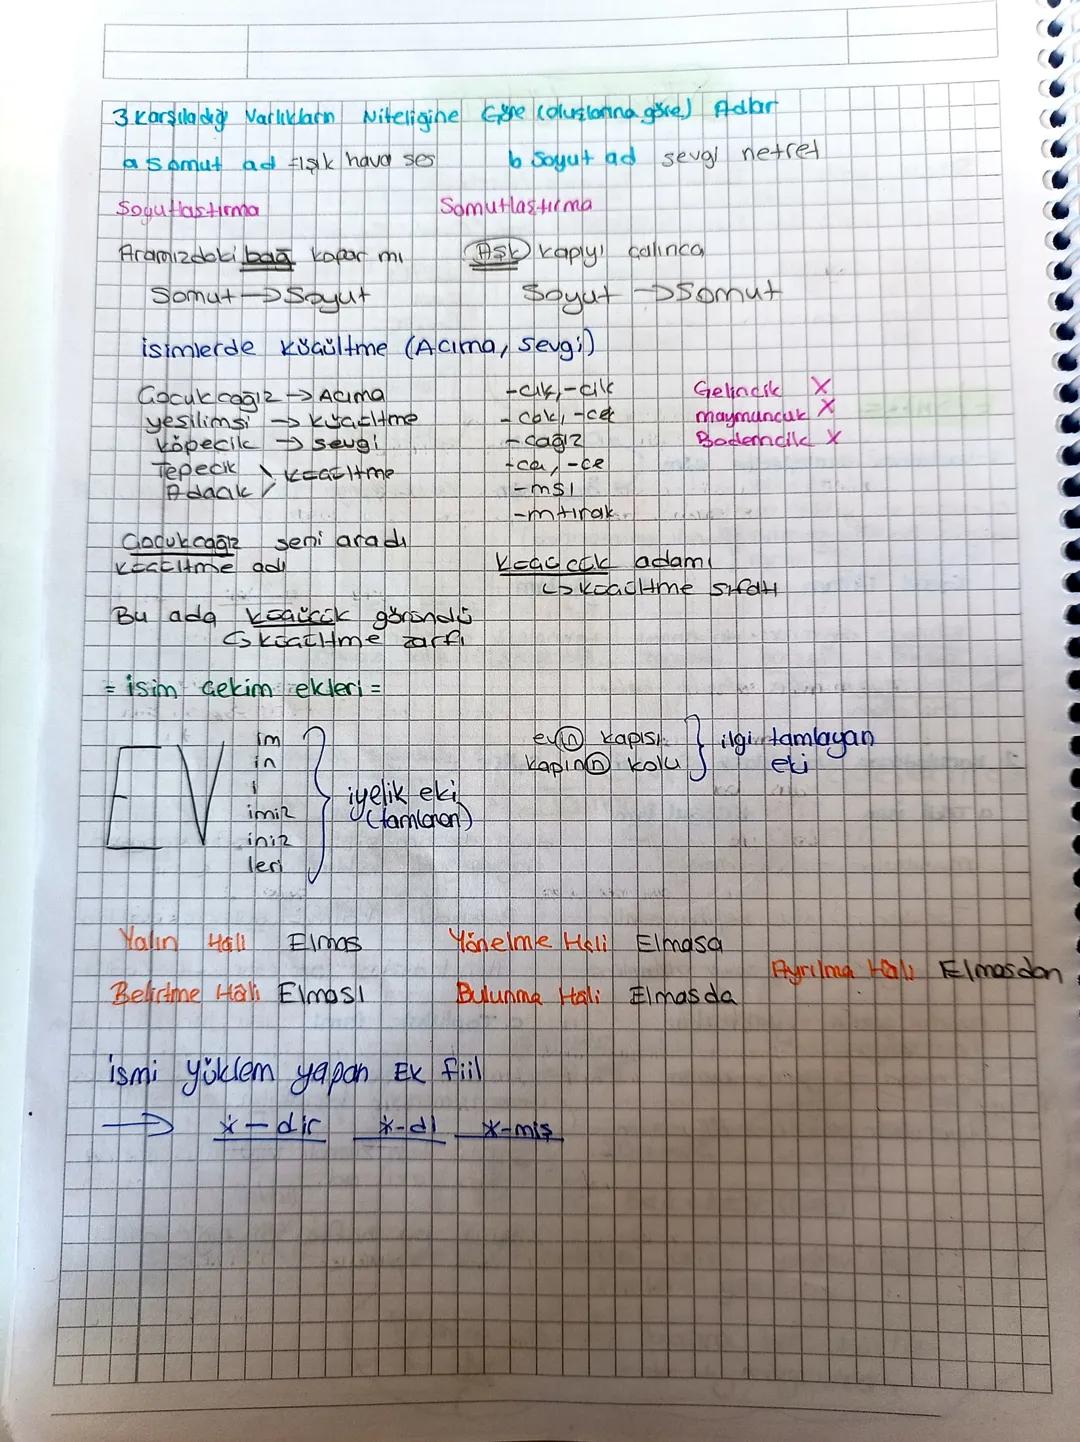 3 Karşıladığı Varlıkların Niteliğine Göre (oluşlarına göre) Adlar
a somut ad ışık hava ses
b Soyut ad sevgi nefret
Soyutlaştırma
Somutlaştırma
Aramızdaki bağ kopar mı
Aşk kapıyı çalınca
Somut → Soyut
Soyut → Somut
isimlerde küçültme (Acıma, sevgi)
Çocukcağız → Acıma
yeşilimsi → küçültme
köpecik → sevgi
Tepecik
Adacık
küçültme
-cık, -cik
-cak, -cek
-cağız
-ca, -ce
-msı
-mtırak
Gelincik X
maymuncuk X
Bademcik X
Çocukcağız seni aradı
küçültme adı
Küçücük adam
↳ küçültme sıfatı
Bu ada küçücük göründü
↳ küçültme zarfı
= isim çekim ekleri =
EV
im
in
i
imiz
iniz
leri
iyelik eki
(tamlanan)
evin kapısı
kapının kolu
ilgi tamlayan
eki
Yalın Hali Elmas
Yönelme Hali Elmasa
Ayrılma Hali Elmasdan
Belirtme Hali Elması
Bulunma Hali Elmasda
ismi yüklem yapan Ek fiil
→ *-dir *-di *-miş